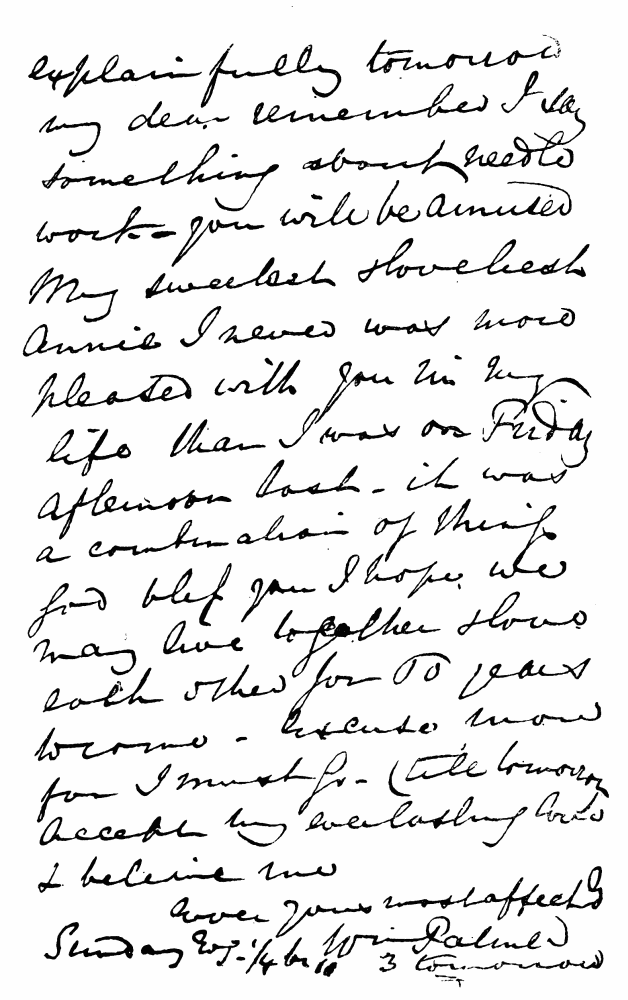 explain fully tomorrow
my dear remember I say
something about needle
work - you will be amused
My sweetest & loveliest
Annie I never was more
pleased with you in my
life than I was on Friday
afternoon last - it was
a combination of things
God bless you I hope we
may live together & love
each other for 60 years
to come - excuse more
for I must go - (till tomorrow
Accept my everlasting love
& believe me
Ever yours most affectd
Sunday Evg. 1/4 to 11 Wm Palmer
3 tomorrow